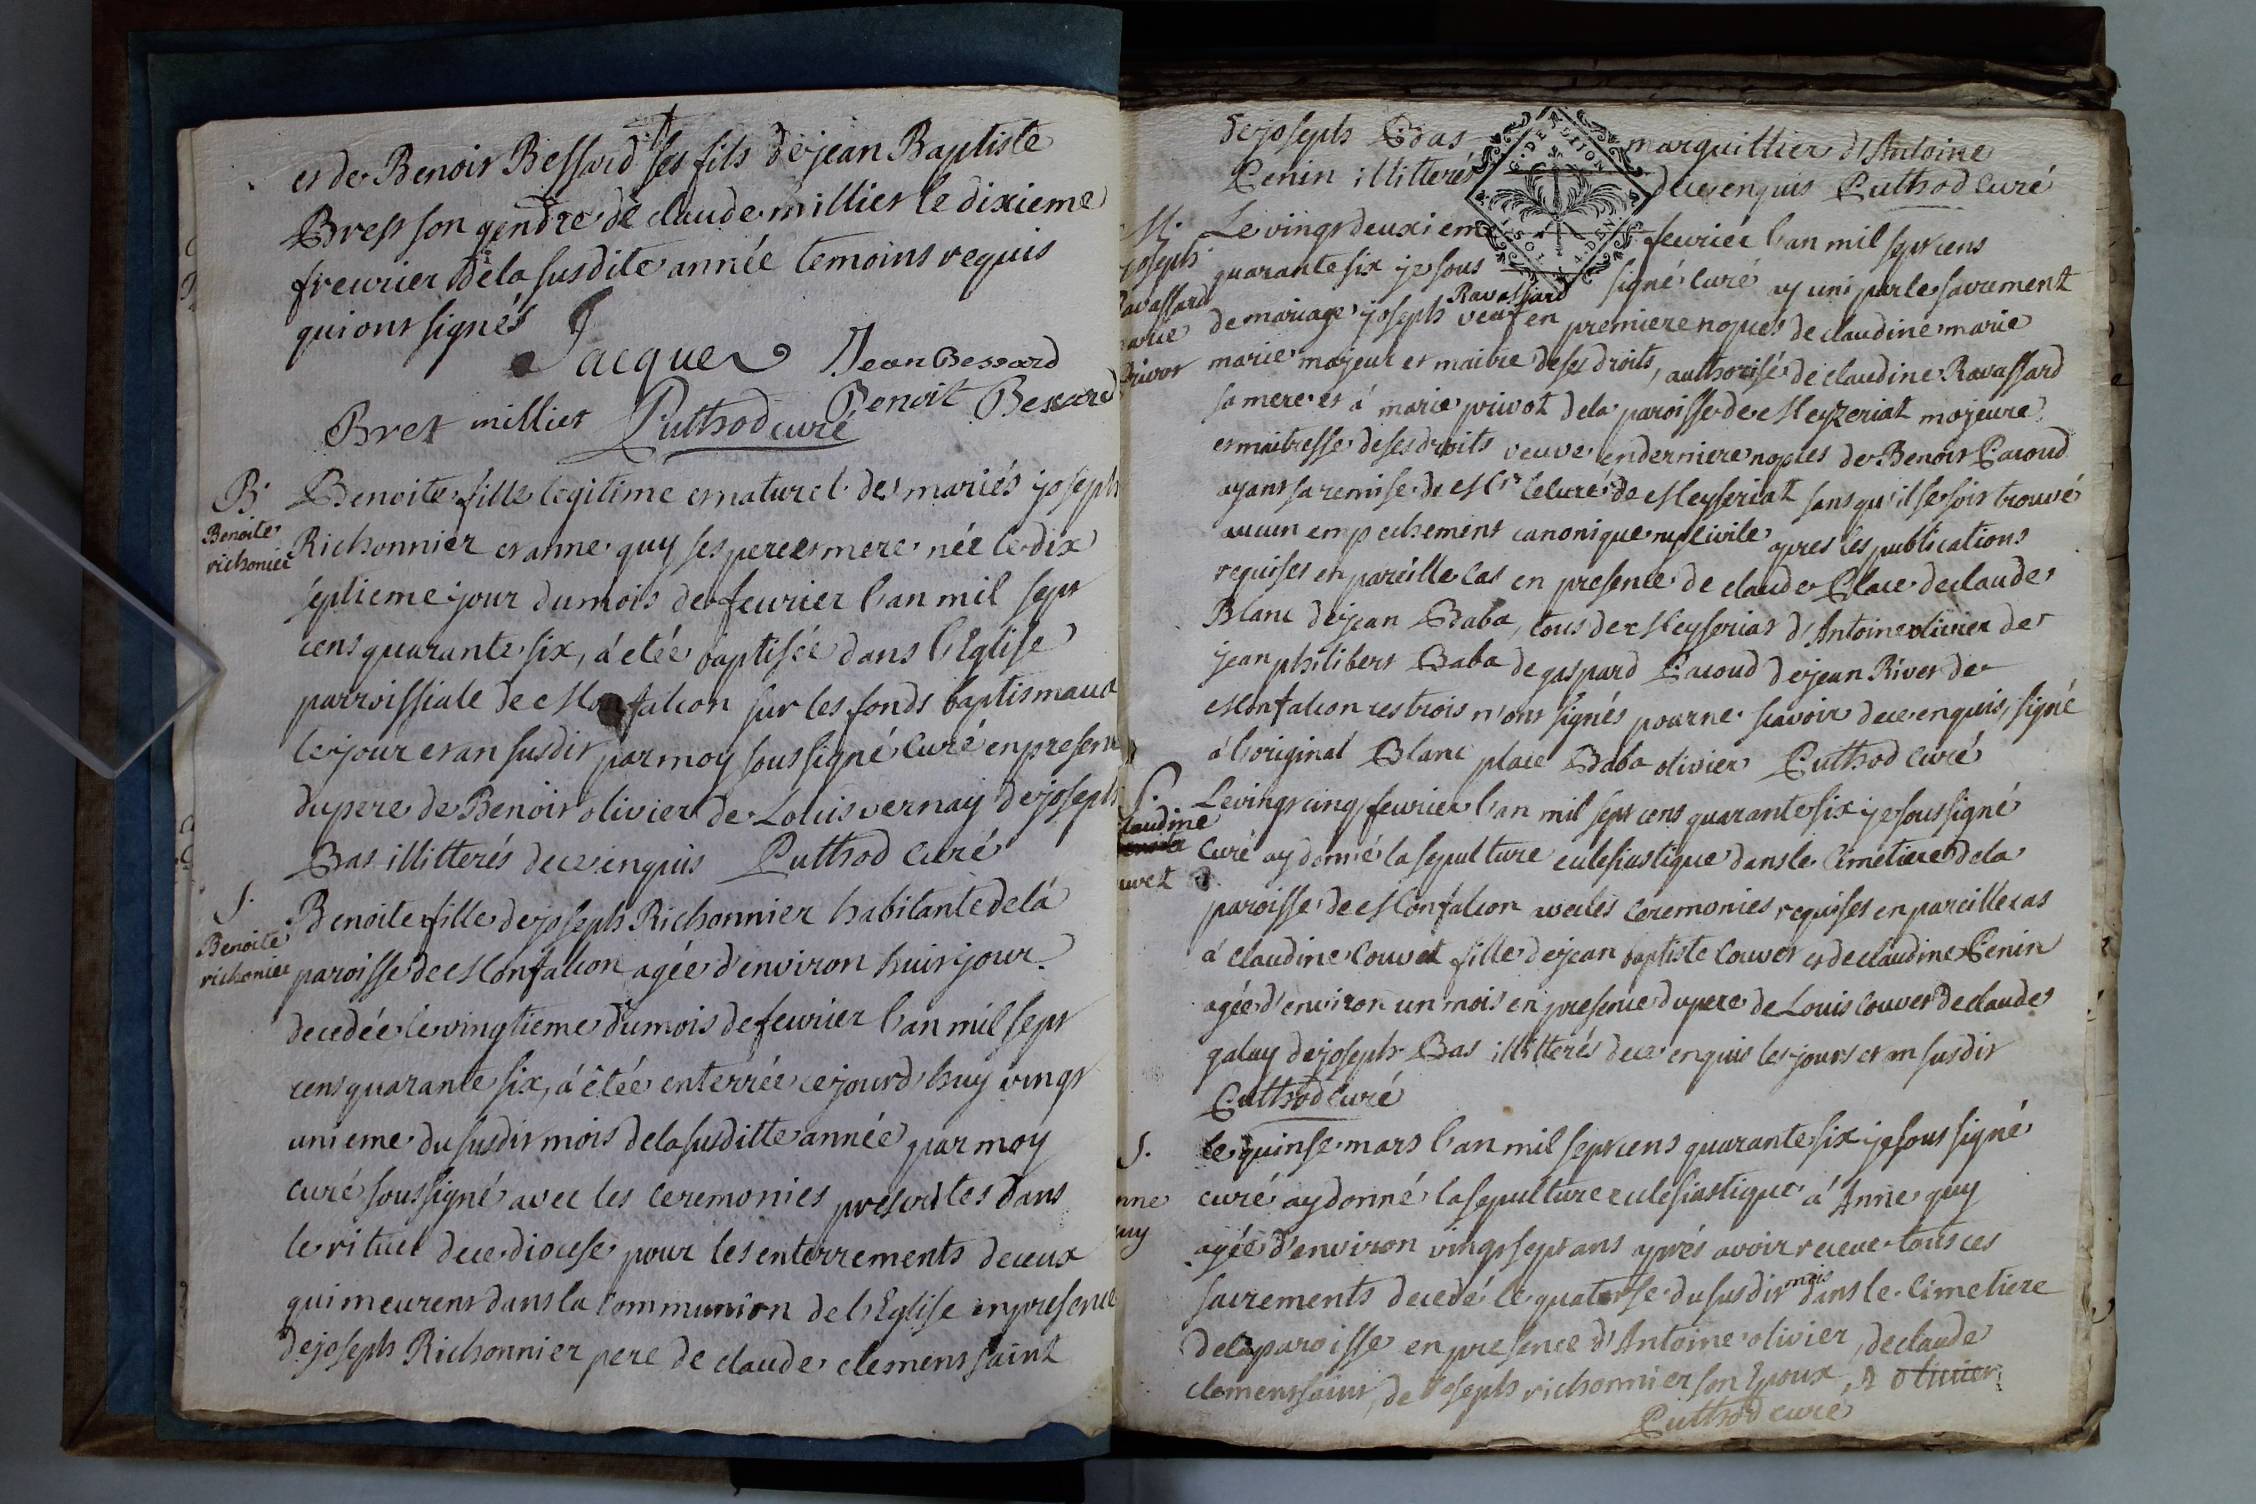 et de Benoit Bessard ses fils de jean Baptiste
Bress son gendre de claude millier le dixieme
freuvrier de la susdite année temoins requis
qui ont signés
Jacque Jean Bessard
Bret millier Puthod curé Benoit Bessard
B. Benoite fille legitime et naturel des mariés joseph
Benoite richonier
Richonnier et anne guy ses pere et mere née le dix
séptieme jour du mois de feuvrier l'an mil sept
cens quarante six, á etée baptisée dans l'Eglise
parroissiale de Monfalcon sur les fonds baptismaux
le jour et an susdit par moy soussigné Curé en presence
du pere de Benoit olivier de Loüis vernay de joseph
Bas illitterés de ce enquis Puthod Curé
S. Benoite fille de joseph Richonnier habitante de la
Benoite richonier
paroisse de Monfalcon agée d'environ huit jour
decedée le vingtieme du mois de feuvrier l'an mil sept
cens quarante six, á êtée enterrée cejourd'huy vingt
unieme du susdit mois de la susditte année par moy
curé soussigné avec les ceremonies prescrites dans
le rituel de ce diocese pour les enterrements de ceux
qui meurent dans la Communion de l'Eglise en presence
de joseph Richonnier pere de claude clemens saint
de joseph Bas marguillier d'Antoine
Penin illitterés de ce enquis Puthod Curé
G. DE DIJON
M. Le vingt deuxieme feuvrier l'an mil sept cens
joseph Ravassard marie Privot
quarante six je sous signé Curé ay uni par le sacrement
de mariage joseph Ravassard veuf en premiere nopces de claudine marie
marie majeur et maitre de ses droits, authorisé de claudine Ravassard
sa mere et á marie privot de la paroisse de Meyzeriat majeure
et maitresse de ses droits veuve en derniere nopces de Benoit Pacoud
ayant sa remise de Mr le Curé de Meyseriat sans qu'il se soit trouvé
aucun empechement canonique ny civile apres les publications
requises en pareille cas en presence de claude Place de claude
Blanc de jean Baba, tous de Meyseriat d'Antoine olivier de
jean philibert Baba de gaspard Pacoud de jean River de
Monfalcon ces trois n'ont signés pour ne scavoir de ce enquis, signé
á l'original Blanc place Baba olivier Puthod Curé
S. Le vingt cinq feuvrier l'an mil sept cens quarante six je soussigné
claudine
couvet
Curé ay donné la sepulture eclesiastique dans le Cimetiere de la
paroisse de Monfalcon avec les Ceremonies requises en pareille cas
á claudine Couvet fille de jean baptiste Couvet et de claudine Penin
agée d'environ un mois en presence du pere de Louis Couvet de claude
galay de joseph Bas illitterés de ce enquis les jours et an susdit
Puthod Curé
S. le quinse mars l'an mil sept cens quarante six je sous signé
anne guy
curé ay donné la sepulture eclesiastique á Anne guy
agée d'environ vingt sept ans aprés avoir receue tous ces
sacrements decedé le quatorse du susdit mois dans le Cimetiere
de la paroisse en presence d'Antoine olivier, de claude
clemens saint, de joseph richonnier son Epoux, A olivier
Puthod curé